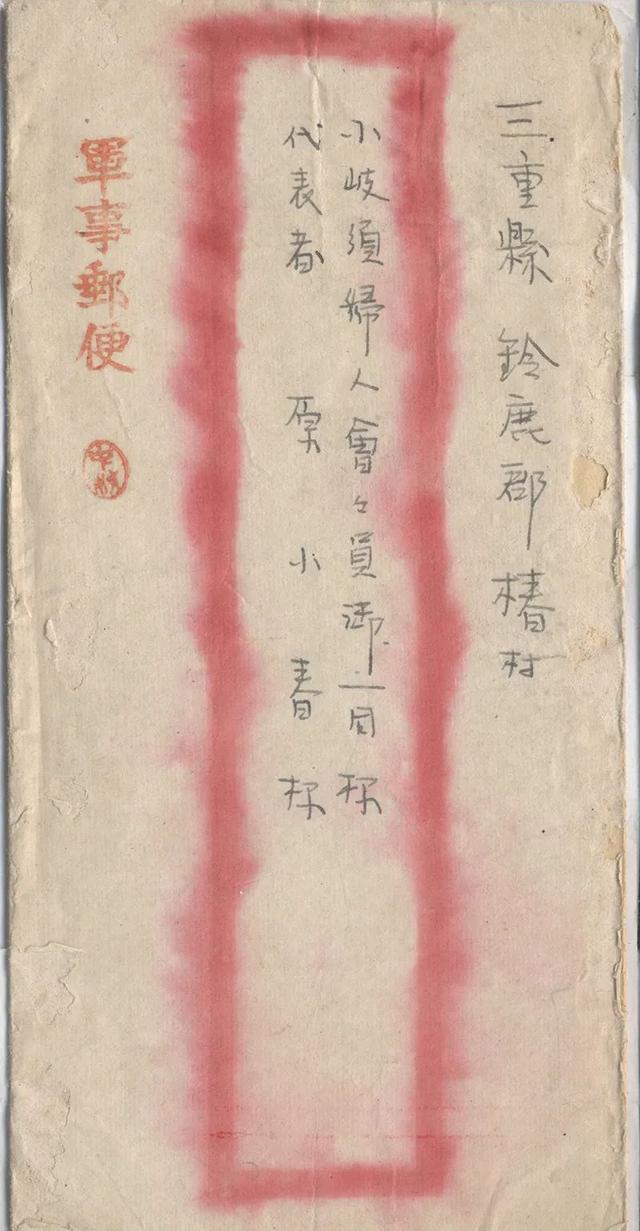 三重縣 鈴鹿郡 椿村
小岐須婦人會々員御一同 様
代表者 原 小春 様
軍事郵便